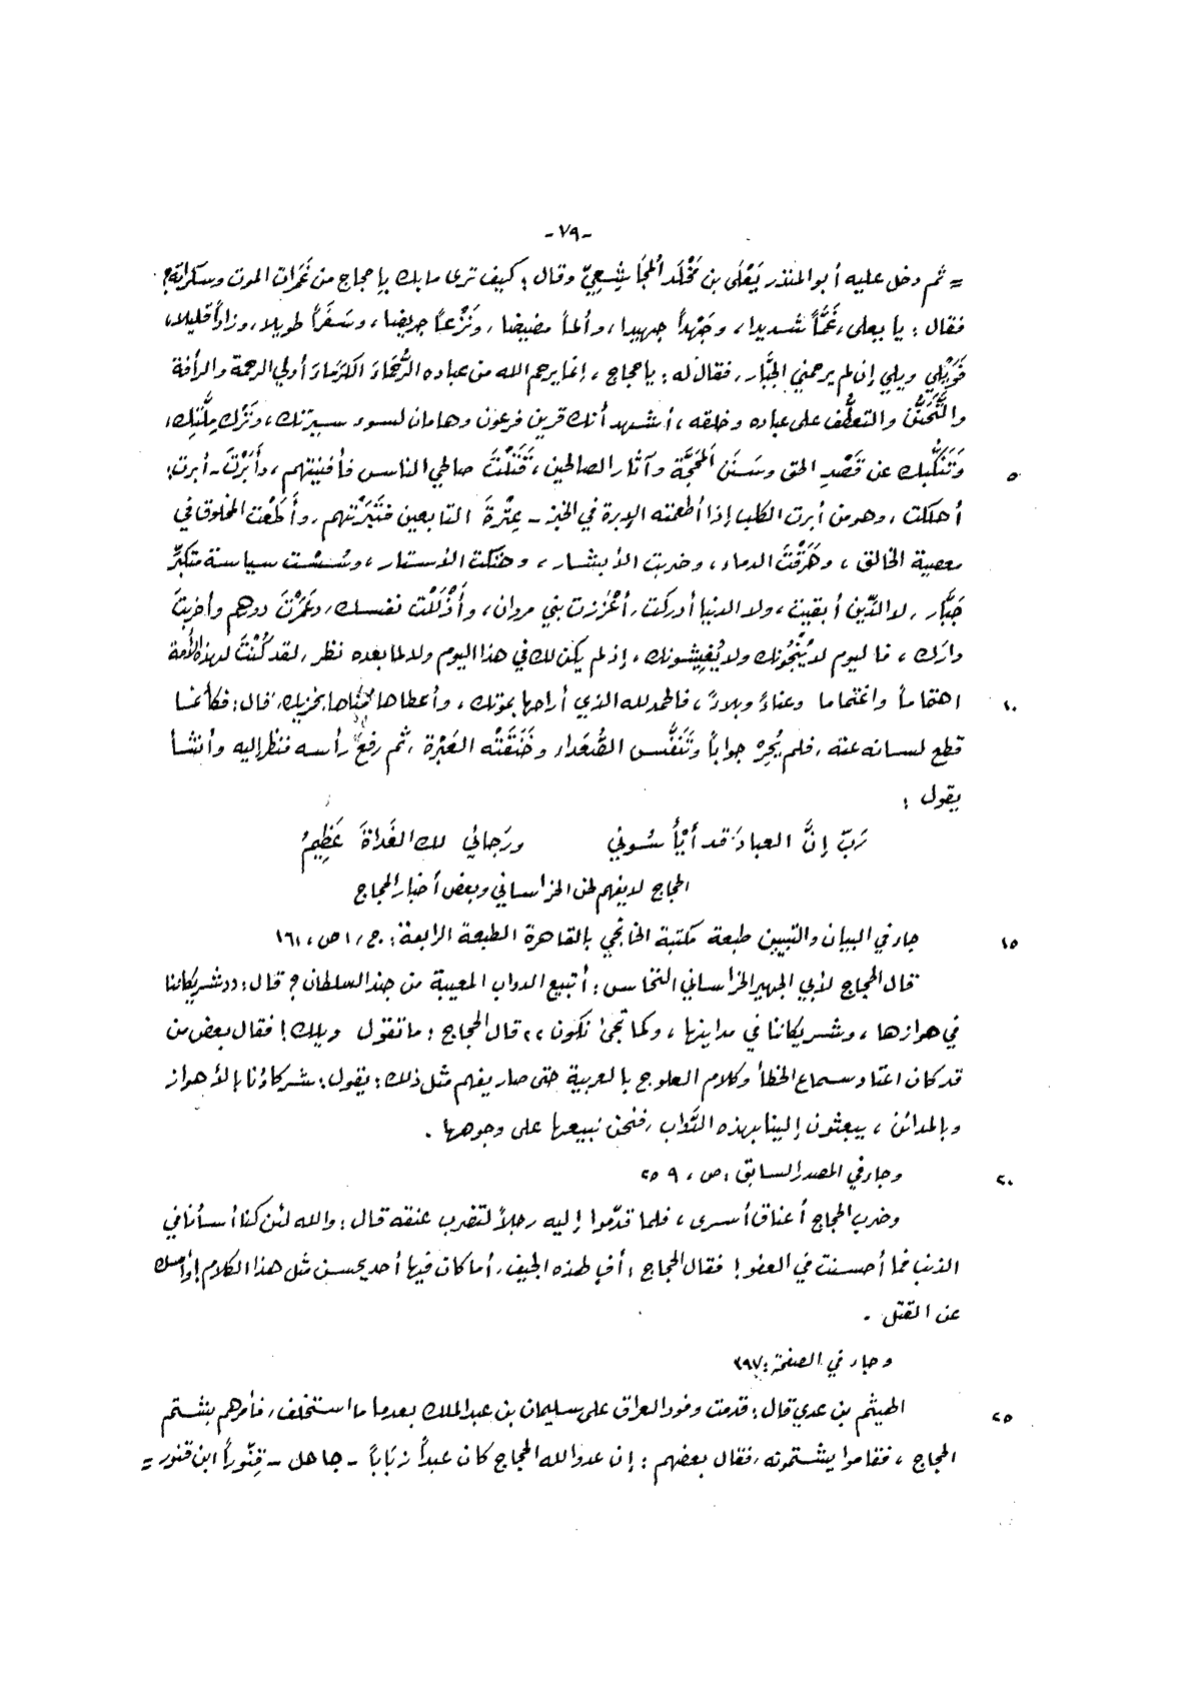 -٧٩-
= ثم دخل عليه أبو المنذر يَعْلَى بن مَخْلَد المُجَاشِعِيّ وقال: كيف ترى ما بك يا حجاج من غَمَرَات الموت وسكراته؟
فقال: يا يعلى، غَمًّا شديدا، وجَهْداً جهيدا، وألماً مضيضا، ونَزْعاً جريضا، وسَفَراً طويلا، وزاداً قليلا،
فَوَيْلِي ويلي إن لم يرحمني الجَبَّار، فقال له: يا حجاج، إنما يرحم الله من عباده الرُّحَمَاءَ الكُرَمَاءَ أولي الرحمة والرأفة
والتَّحَنُّن والتعطُّف على عباده وخلقه، أشهد أنك قرين فرعون وهامان لسوء سيرتك، وتَرْك مِلَّتِك،
٥ وَتَنَكُّبِك عن قَصْدِ الحق وسَنَن المَحَجَّة وآثار الصالحين، قَتَلْتَ صالحي الناس فأفنيتهم، وأَبَرْتَ - أبرت:
أهلكت، وهو من أبرت الكلب إذا أطعمته الإبرة في الخبز - عِتْرةَ التابعين فتَبَرْتهم، وأَطَعْت المخلوق في
معصية الخالق، وهَرَقْتَ الدماء، وضربت الأبشار، وهتكت الأستار، وسُسْت سياسة متكبِّر
جَبَّار، لا الدِّين أبقيت، ولا الدنيا أدركت، أعْزَزت بني مروان، وأَذْلَلْت نفسك، وعَمَرْتَ دورهم وأخربتَ
دارك، فاليوم لا يُنْجُونك ولا يُغِيثونك، إذ لم يكن لك في هذا اليوم ولا لما بعده نظر، لقد كُنْتَ لهذه الأمة
١٠ اهتماماً واغتماما وعناءً وبلاءً، فالحمد لله الذي أراحها بموتك، وأعطاها مُناها بخزيك، قال: فكأنما
قطع لسانه عنه، فلم يُحِرْ جواباً وتَنَفَّس الصُّعَداء وخَنَقَتْه العَبْرة، ثم رفع رأسه فنظر إليه وأنشأ
يقول:
رَبِّ إنَّ العبادَ قد أَيْأَسُوني ورَجائي لك الغَداةَ عَظِيمُ
الحجاج لا يفهم لحن الخراساني وبعض أخبار الحجاج
١٥ جاء في البيان والتبيين طبعة مكتبة الخانجي بالقاهرة الطبعة الرابعة: ج، ١ ص، ١٦١
قال الحجاج لأبي الجهير الخراساني النخاس: أتبيع الدواب المعيبة من جند السلطان؟ قال: ((شريكاننا
في هوازها، وشريكاننا في مداينها، وكما تجئ نكون)) قال الحجاج: ما تقول ويلك! فقال بعض من
قد كان اعتاد سماع الخطأ وكلام العلوج بالعربية حتى صار يفهم مثل ذلك: يقول: شركاؤنا بالأهواز
وبالمدائن، يبعثون إلينا بهذه الدَّواب، فنحن نبيعها على وجوهها.
٢٠ وجاء في المصدر السابق: ص، ٢٥٩
وضرب الحجاج أعناق أسرى، فلما قدّموا إليه رجلاً لتضرب عنقه قال: والله لئن كنا أسأنا في
الذنب فما أحسنت في العفو! فقال الحجاج: أفٍ لهذه الجيف، أما كان فيها أحد يحسن مثل هذا الكلام! وأمسك
عن القتل.
وجاء في الصفحة: ٣٩٧
٢٥ الهيثم بن عدي قال: قدمت وفود العراق على سليمان بن عبد الملك بعدما ما استخلف، فأمرهم بشتم
الحجاج، فقاموا يشتمونه، فقال بعضهم: إن عدو الله الحجاج كان عبداً زبَاباً - جاهل - قِنّوراً ابن قنور =